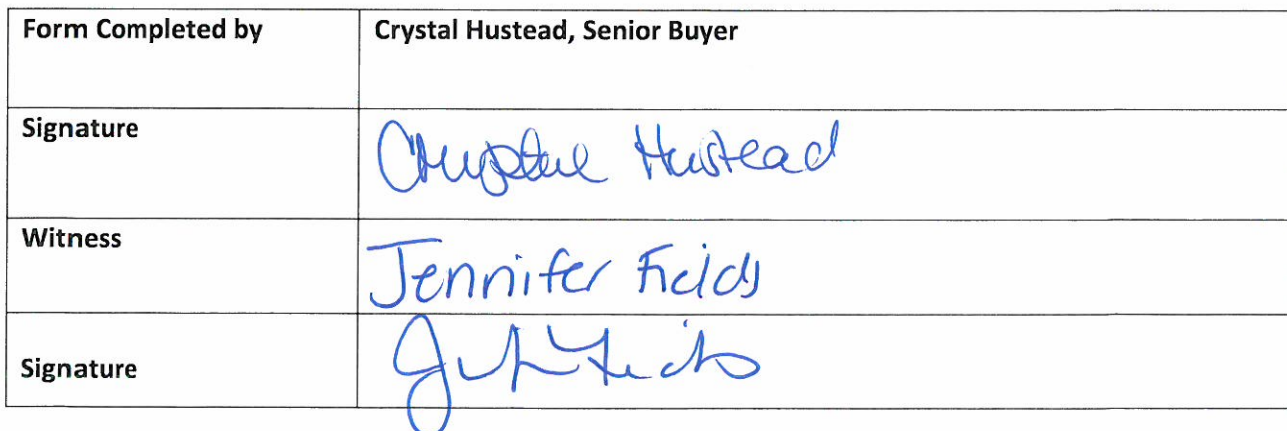 Form Completed by Crystal Hustead, Senior Buyer
Signature Crystal Hustead
Witness Jennifer Fields
Signature